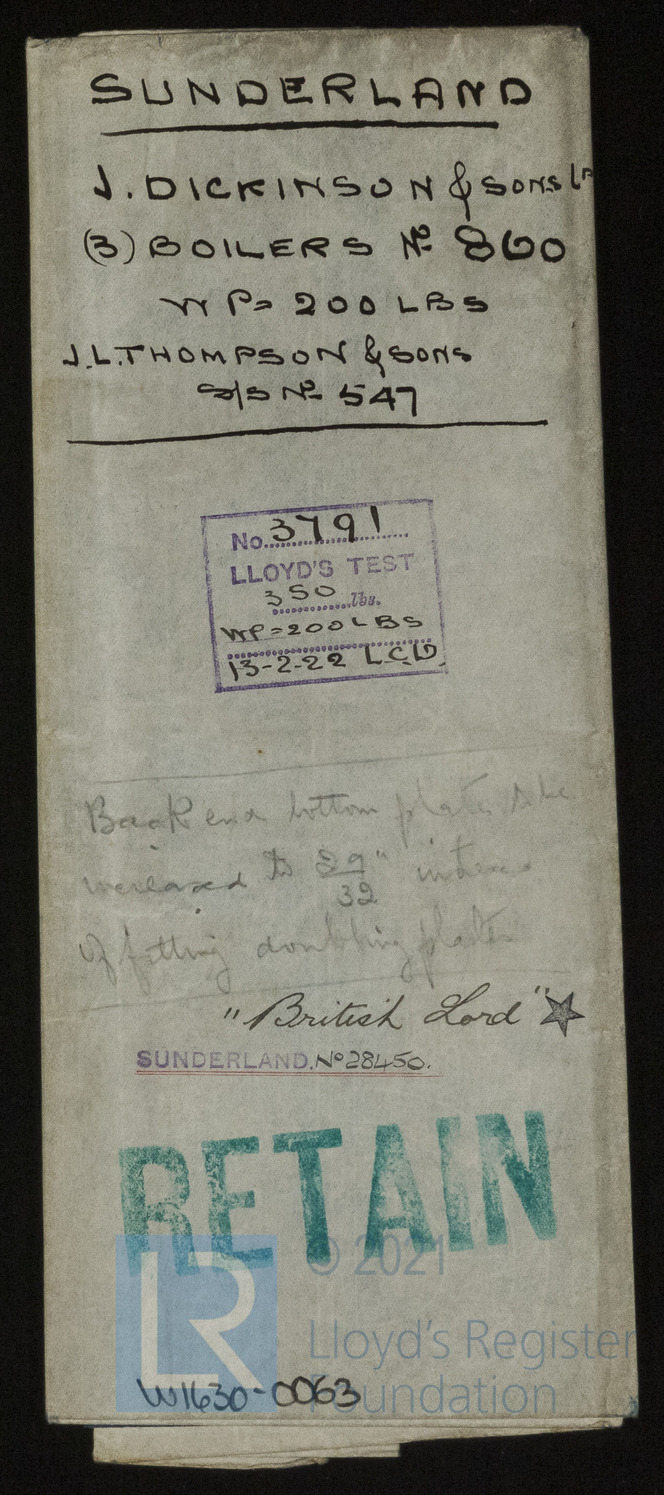 SUNDERLAND
J. DICKINSON & SONS LD
(3) BOILERS No 860
WP= 200 LBS
J.L. THOMPSON & SONS
S/S No 547
No. 3791
LLOYD'S TEST
350 lbs.
WP=200 LBS
13-2-22 L.C.D.
Back end bottom plate to be
increased to 29/32"
of fitting doubling plates
"British Lord" ☆
SUNDERLAND. No 28450.
RETAIN
LR
© 2021
Lloyd's Register
Foundation
W1630-0063